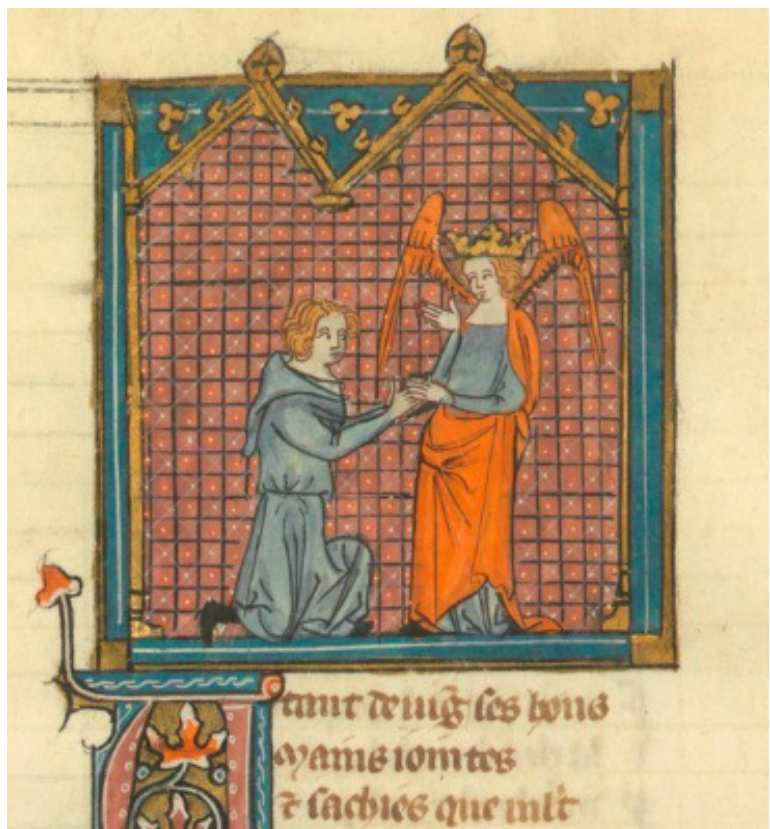 Atant deuīg ses hons
Mains iointes
⁊ sachies que ml̄t